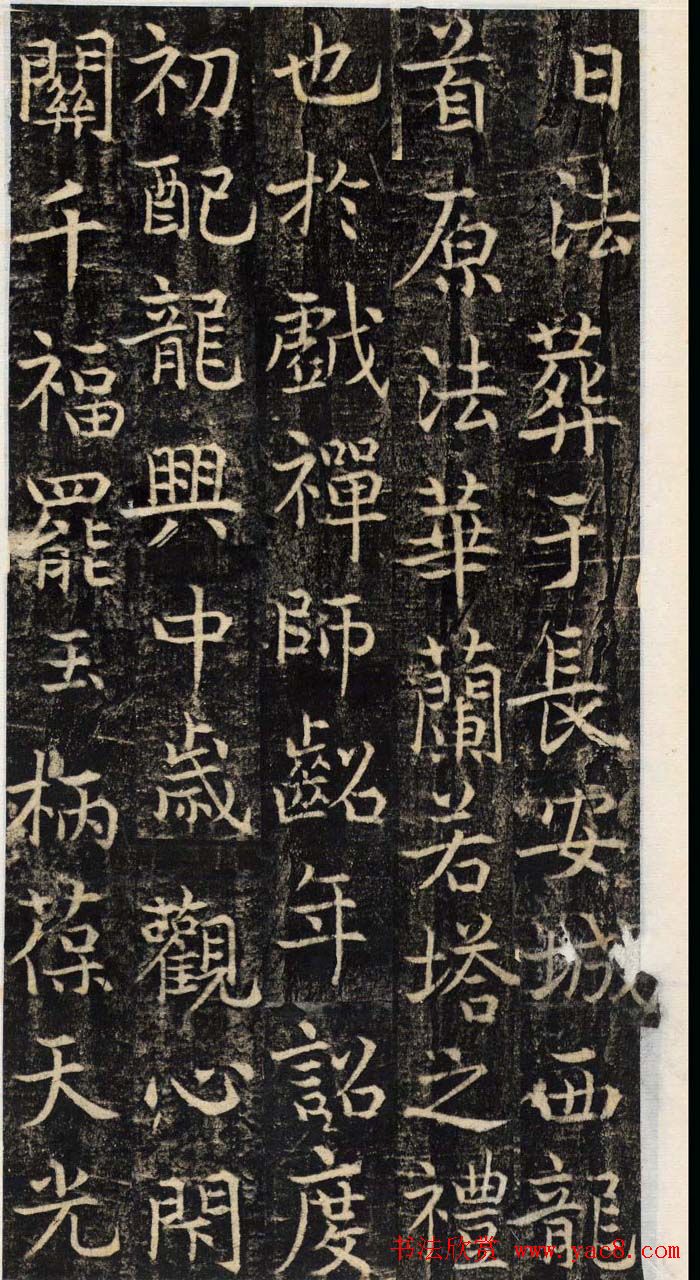 日法葬于長安城西龍
首原法華蘭若塔之禮
也於戲禪師齠年詔度
初配龍興中歲觀心閑
關千福罷玉柄葆天光
书法欣赏 www.yac8.com